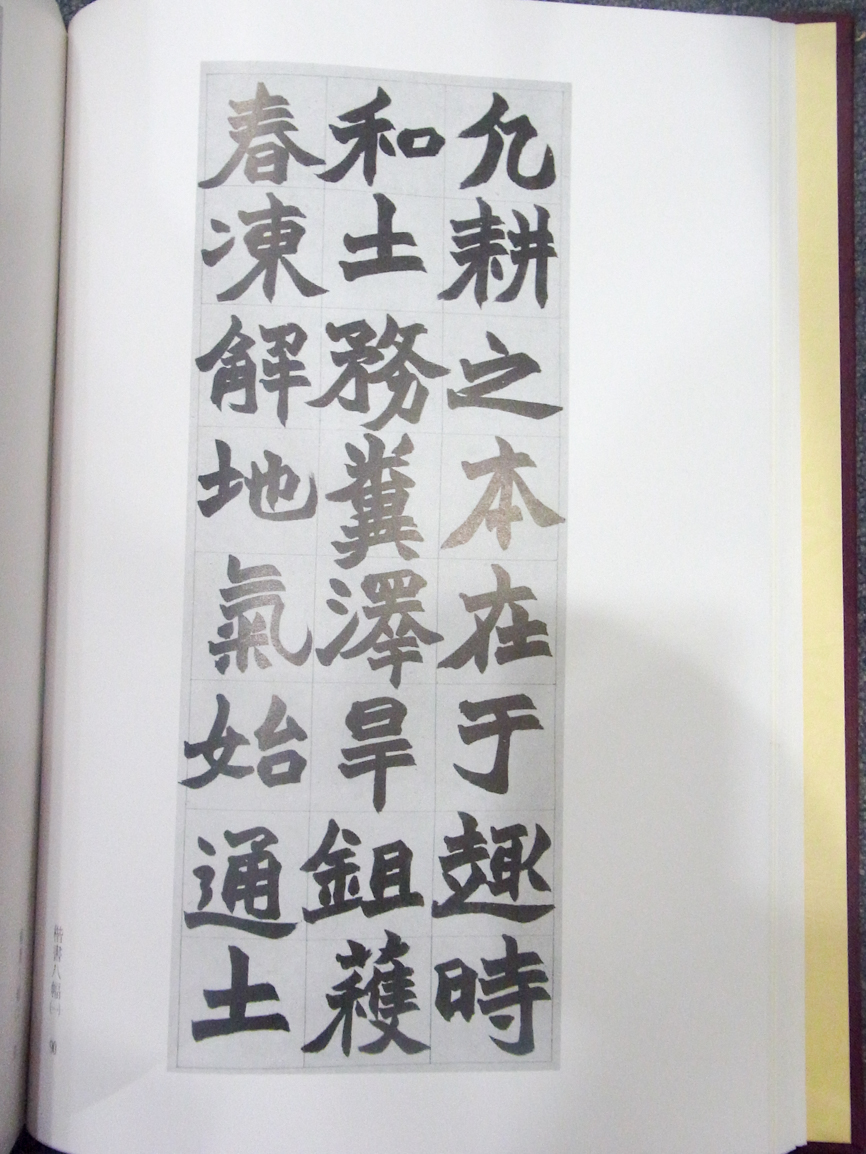 凡耕之本在于趣時
和土務糞澤旱鉏穫
春凍解地氣始通土
楷書八幅(一) 90